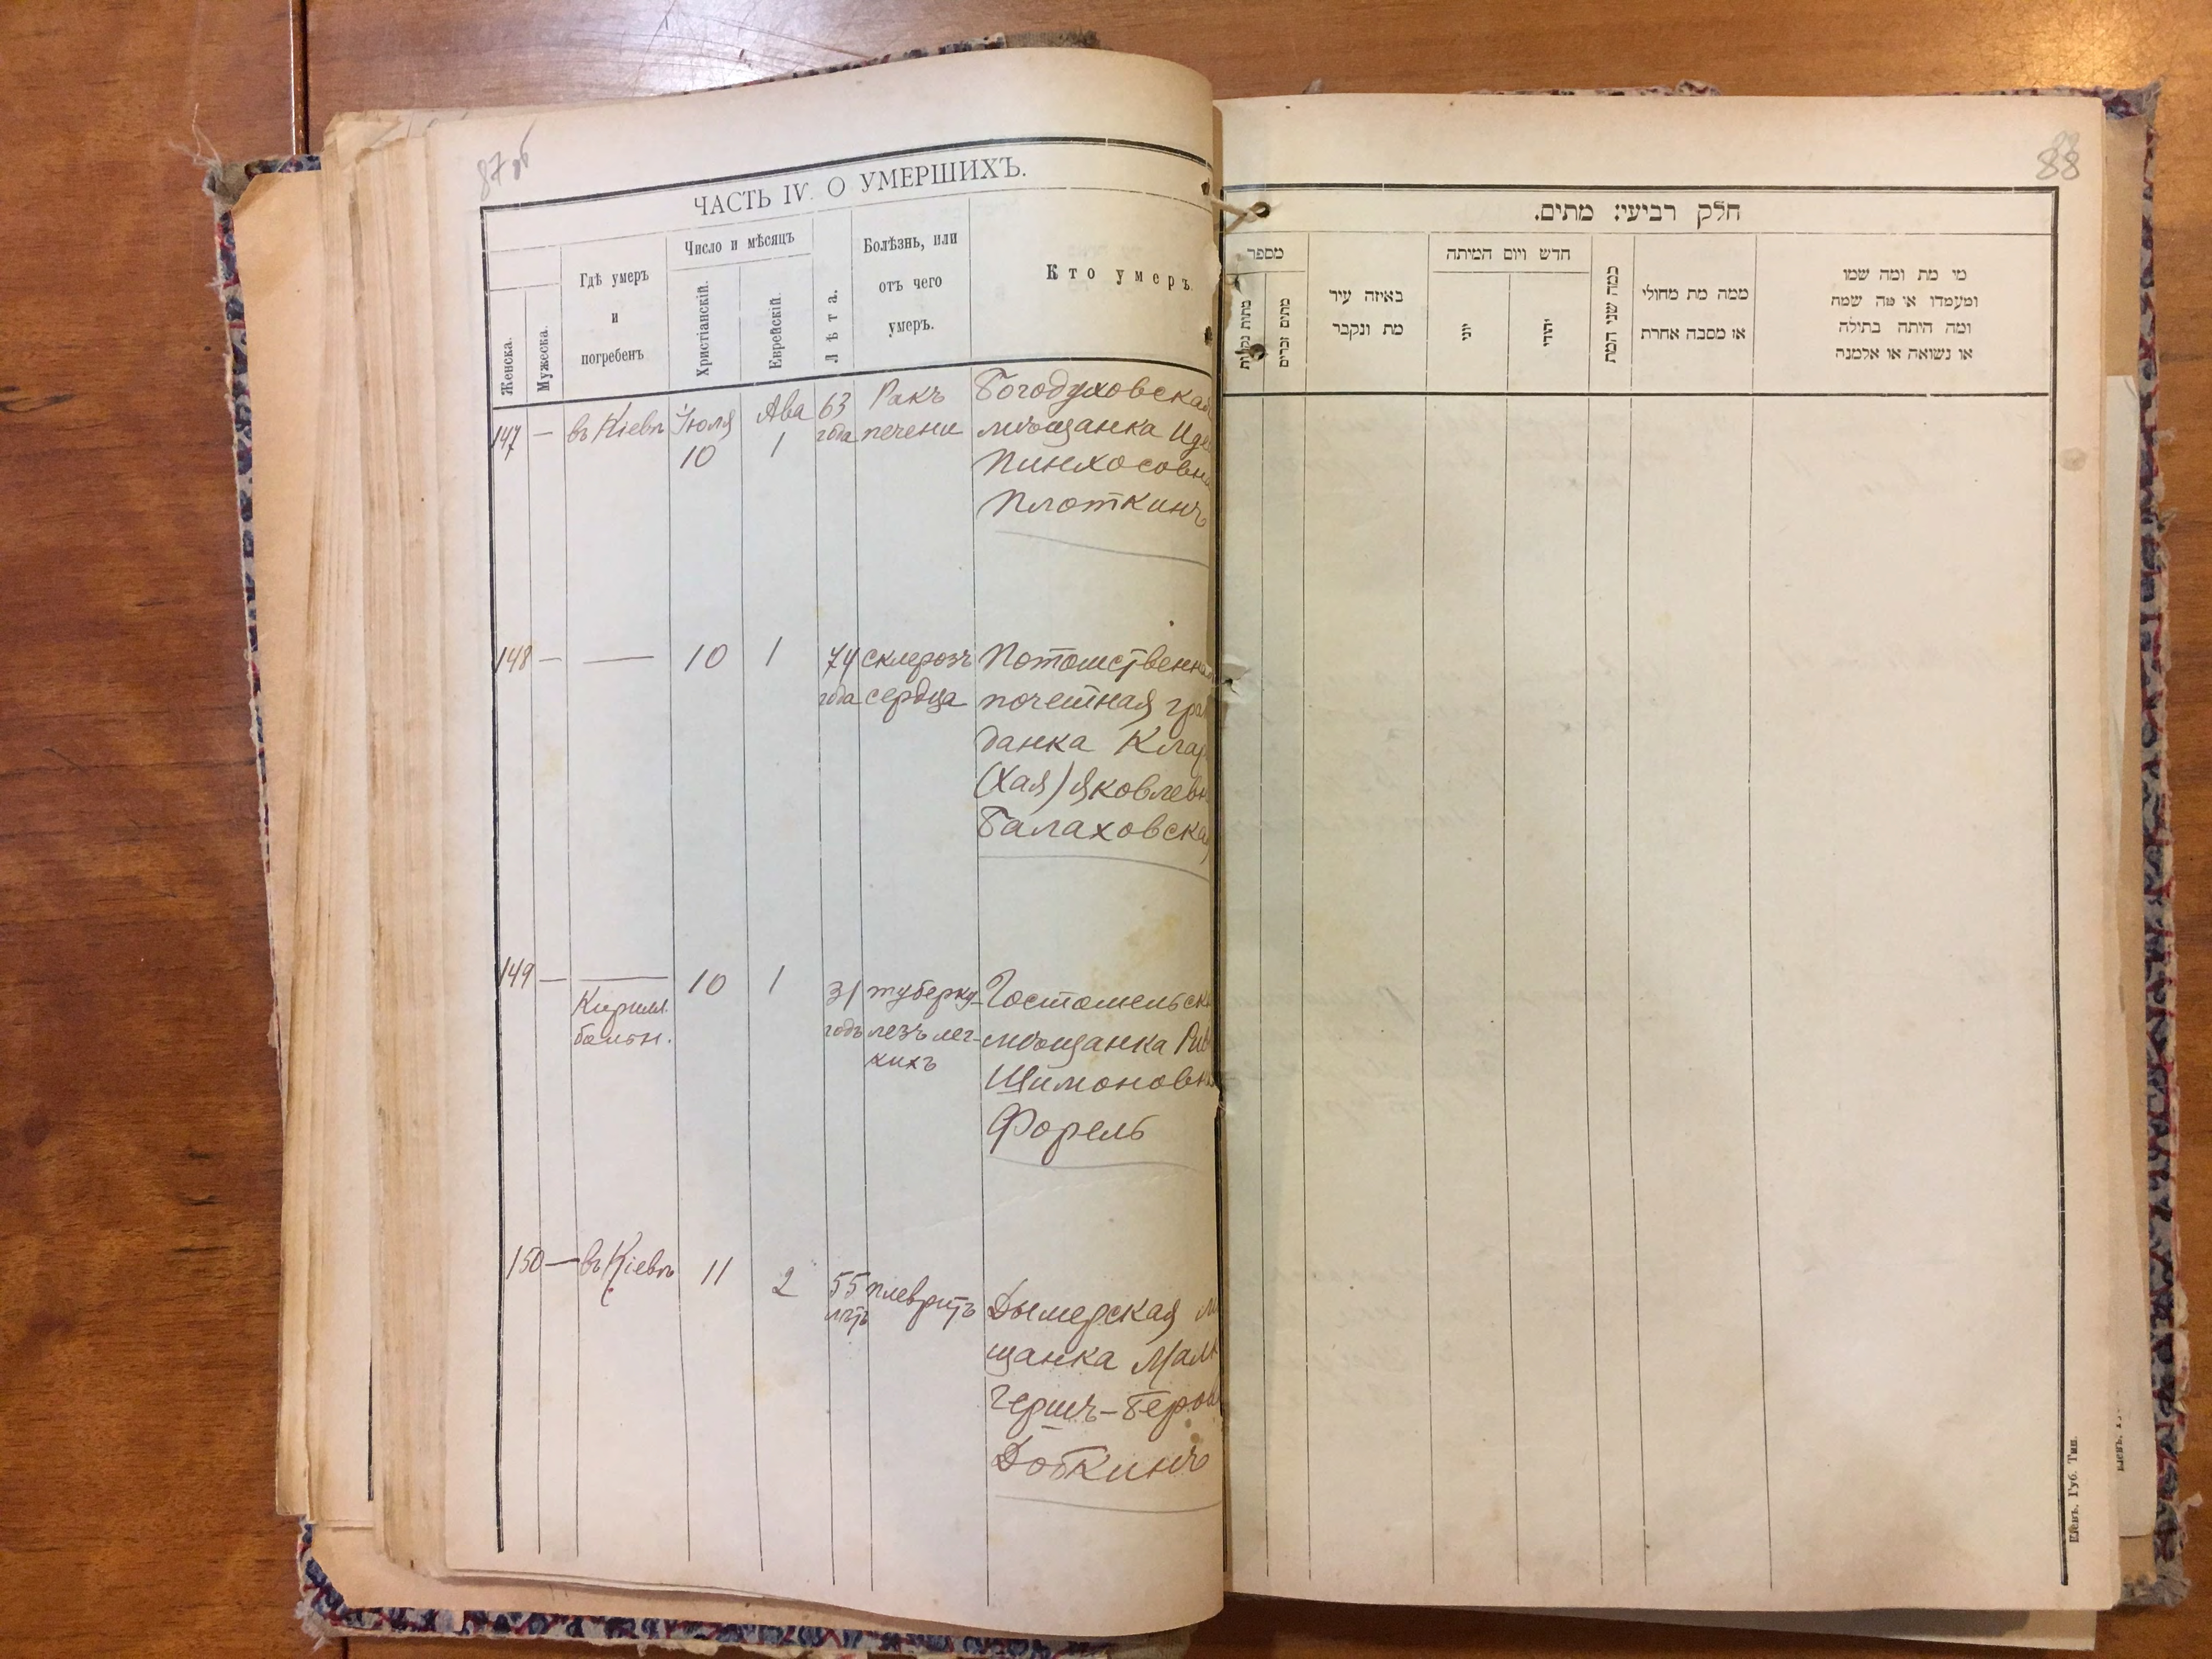 87 об
ЧАСТЬ IV. О УМЕРШИХЪ.
Женска.
Мужеска.
Гдѣ умеръ
и
погребенъ
Число и мѣсяцъ
Христіанскій.
Еврейскій.
Лѣта.
Болѣзнь, или
отъ чего
умеръ.
Кто умеръ.
147 — въ Кіевѣ Іюля 10 Ава 1 63 года Ракъ печени
Богодуховская
мѣщанка
Пинхосовна
Плоткинъ
148 — — 10 1 74 года склерозъ сердца
Потомственная
почетная граж
данка
(Хая) Яковлевна
Балаховская
149 — — 10 1
Кирилл.
больн.
31 годъ туберку-
лезъ лег-
кихъ
Гостомельская
мѣщанка
Шимоновна
Форель
150 — въ Кіевѣ 11 2 55 лѣтъ плевритъ
Дымерская
щанка
Гершъ-Беровна
Добкинъ
88
חלק רביעי: מתים.
מספר
מתות נקבות
מתים זכרים
באיזה עיר
מת ונקבר
חדש ויום המיתה
יוני
יהודי
כמה שני המת
ממה מת מחולי
או מסבה אחרת
מי מת ומה שמו
ומעמדו או מה שמה
ומה היתה בתולה
או נשואה או אלמנה
Кіевъ. Губ. Тип.